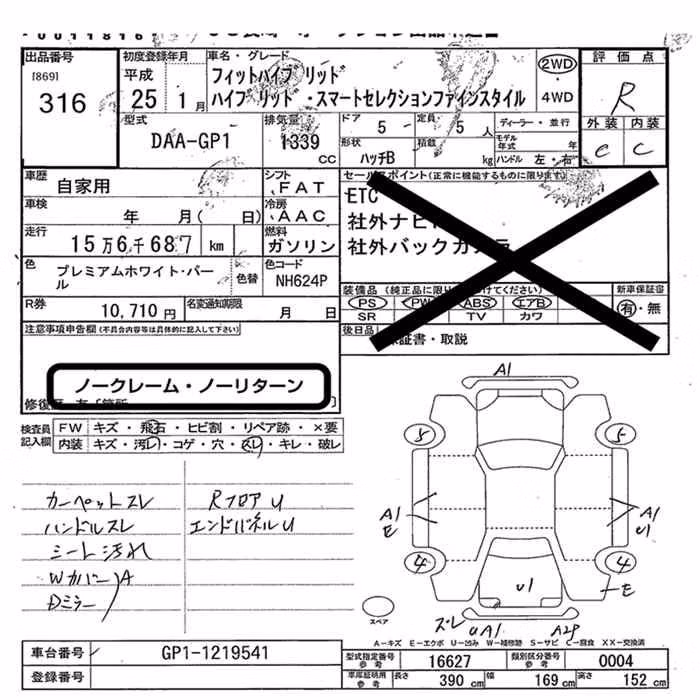 出品番号
[869]
316
初度登録年月
平成
25 1月
車名・グレード
フィットハイブリッド
ハイブリット・スマートセレクションファインスタイル
2WD
・
4WD
評価点
R
外装 内装
C C
型式
DAA-GP1
排気量
1339
CC
ドア 5
定員 5人
形状
ハッチB
積載
kg
ディーラー・並行
モデル年式 年
ハンドル 左・右
車歴
自家用
シフト
FAT
車検
年 月( 日)
冷房
AAC
走行
15万6千687 km
燃料
ガソリン
色
プレミアムホワイト・パール
色替
色コード
NH624P
R券
10,710円
名変通知期限
月 日
セールスポイント(正常に機能するものに限ります)
ETC
社外ナビ
社外バックカメラ
装備品(純正品に限り
けてください)
PS PW ABS エアB
SR TV カワ
新車保証書
有・無
後日品
保証書・取説
注意事項申告欄(不具合内容等は具体的に記入して下さい)
ノークレーム・ノーリターン
検査員記入欄
FW キズ・飛石・ヒビ割・リペア跡・×要
内装 キズ・汚レ・コゲ・穴・スレ・キレ・破レ
カーペットスレ RフロアU
ハンドルスレ エンドパネルU
シート汚れ
Wカバー)A
Dミラー
A1
5 5
A1
E
A1
U1
4 4
E
U1
スペア
スレ
UA1 A2P
A-キズ E-エクボ U-凹み W-補修跡 S-サビ C-腐食 XX-交換済
車台番号 GP1-1219541
登録番号
型式指定番号
参考
16627
類別区分番号
参考
0004
車庫証明用
参考
長さ 390 cm 幅 169 cm 高さ 152 cm